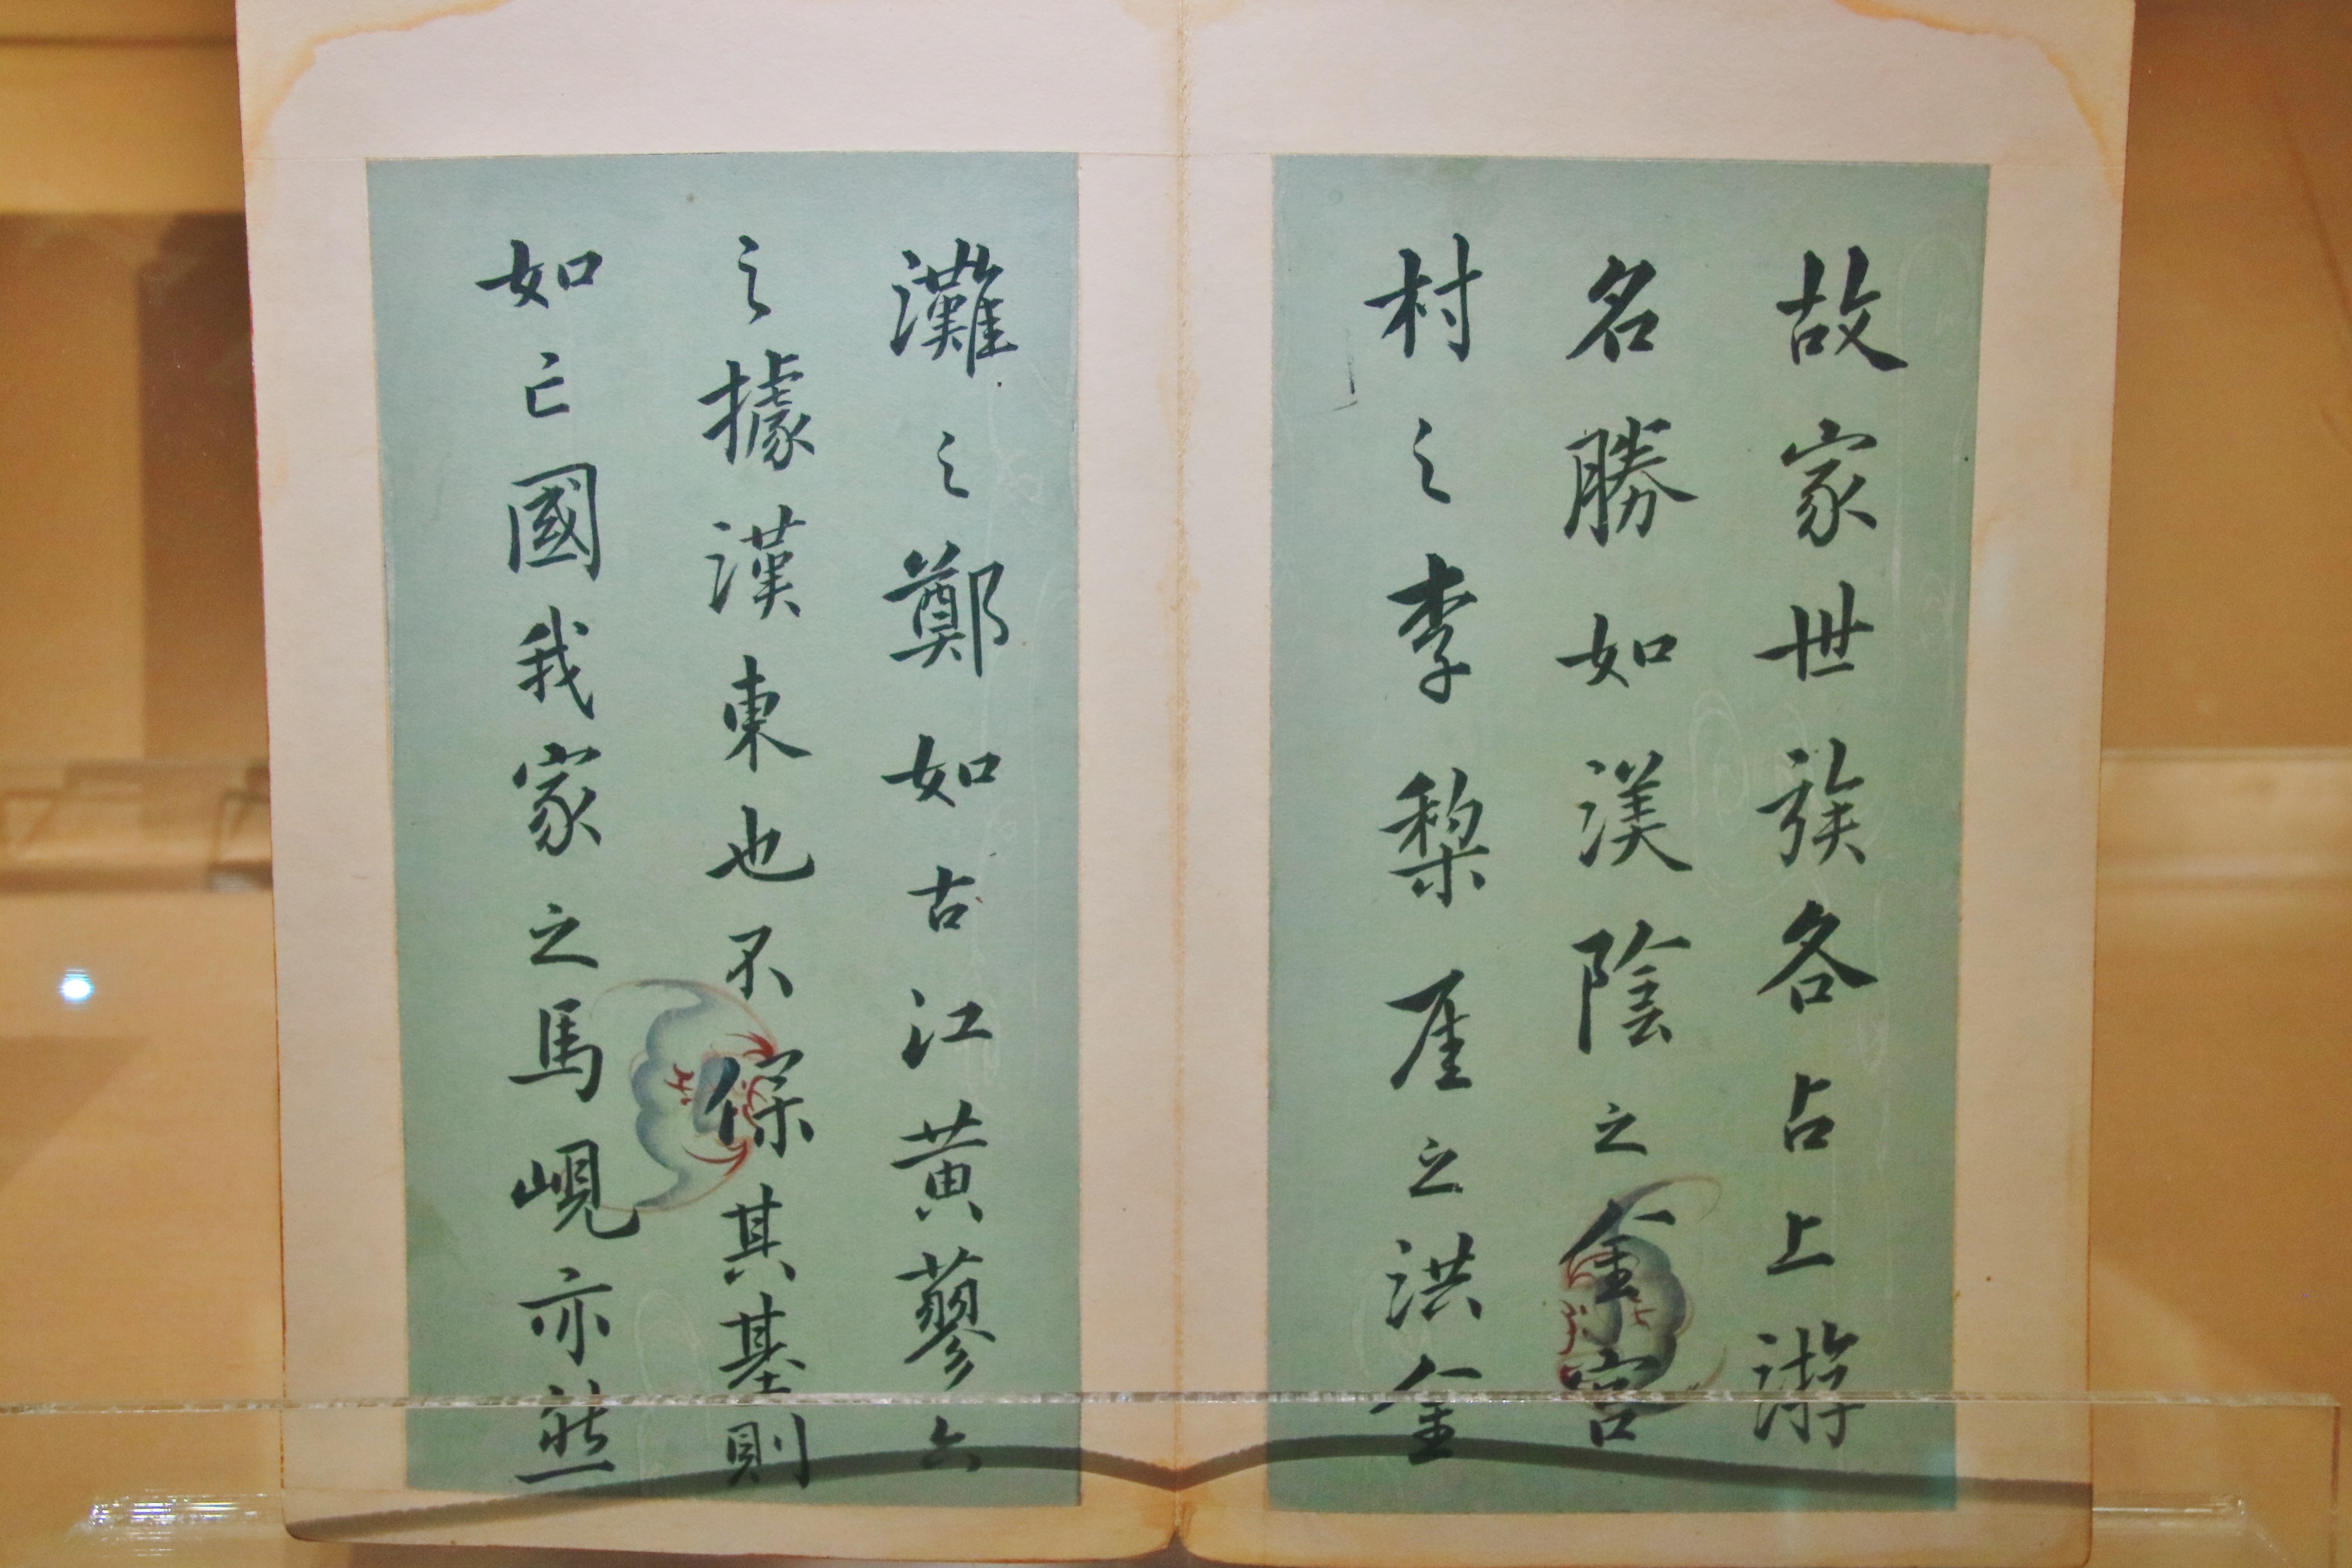 故家世族各占上游
名勝如渼陰之金宮
村之李棃厓之洪金
灘之鄭如古江黄蓼六
之據漢東也不保其基則
如亡國我家之馬峴亦然